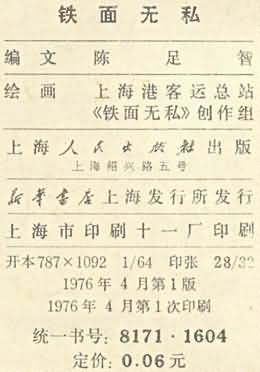 铁面无私
编文 陈足智
绘画 上海港客运总站
《铁面无私》创作组
上海人民出版社出版
上海绍兴路五号
新华书店上海发行所发行
上海市印刷十一厂印刷
开本787×1092 1/64 印张 28/32
1976年4月第1版
1976年4月第1次印刷
统一书号：8171·1604
定价：0.06元